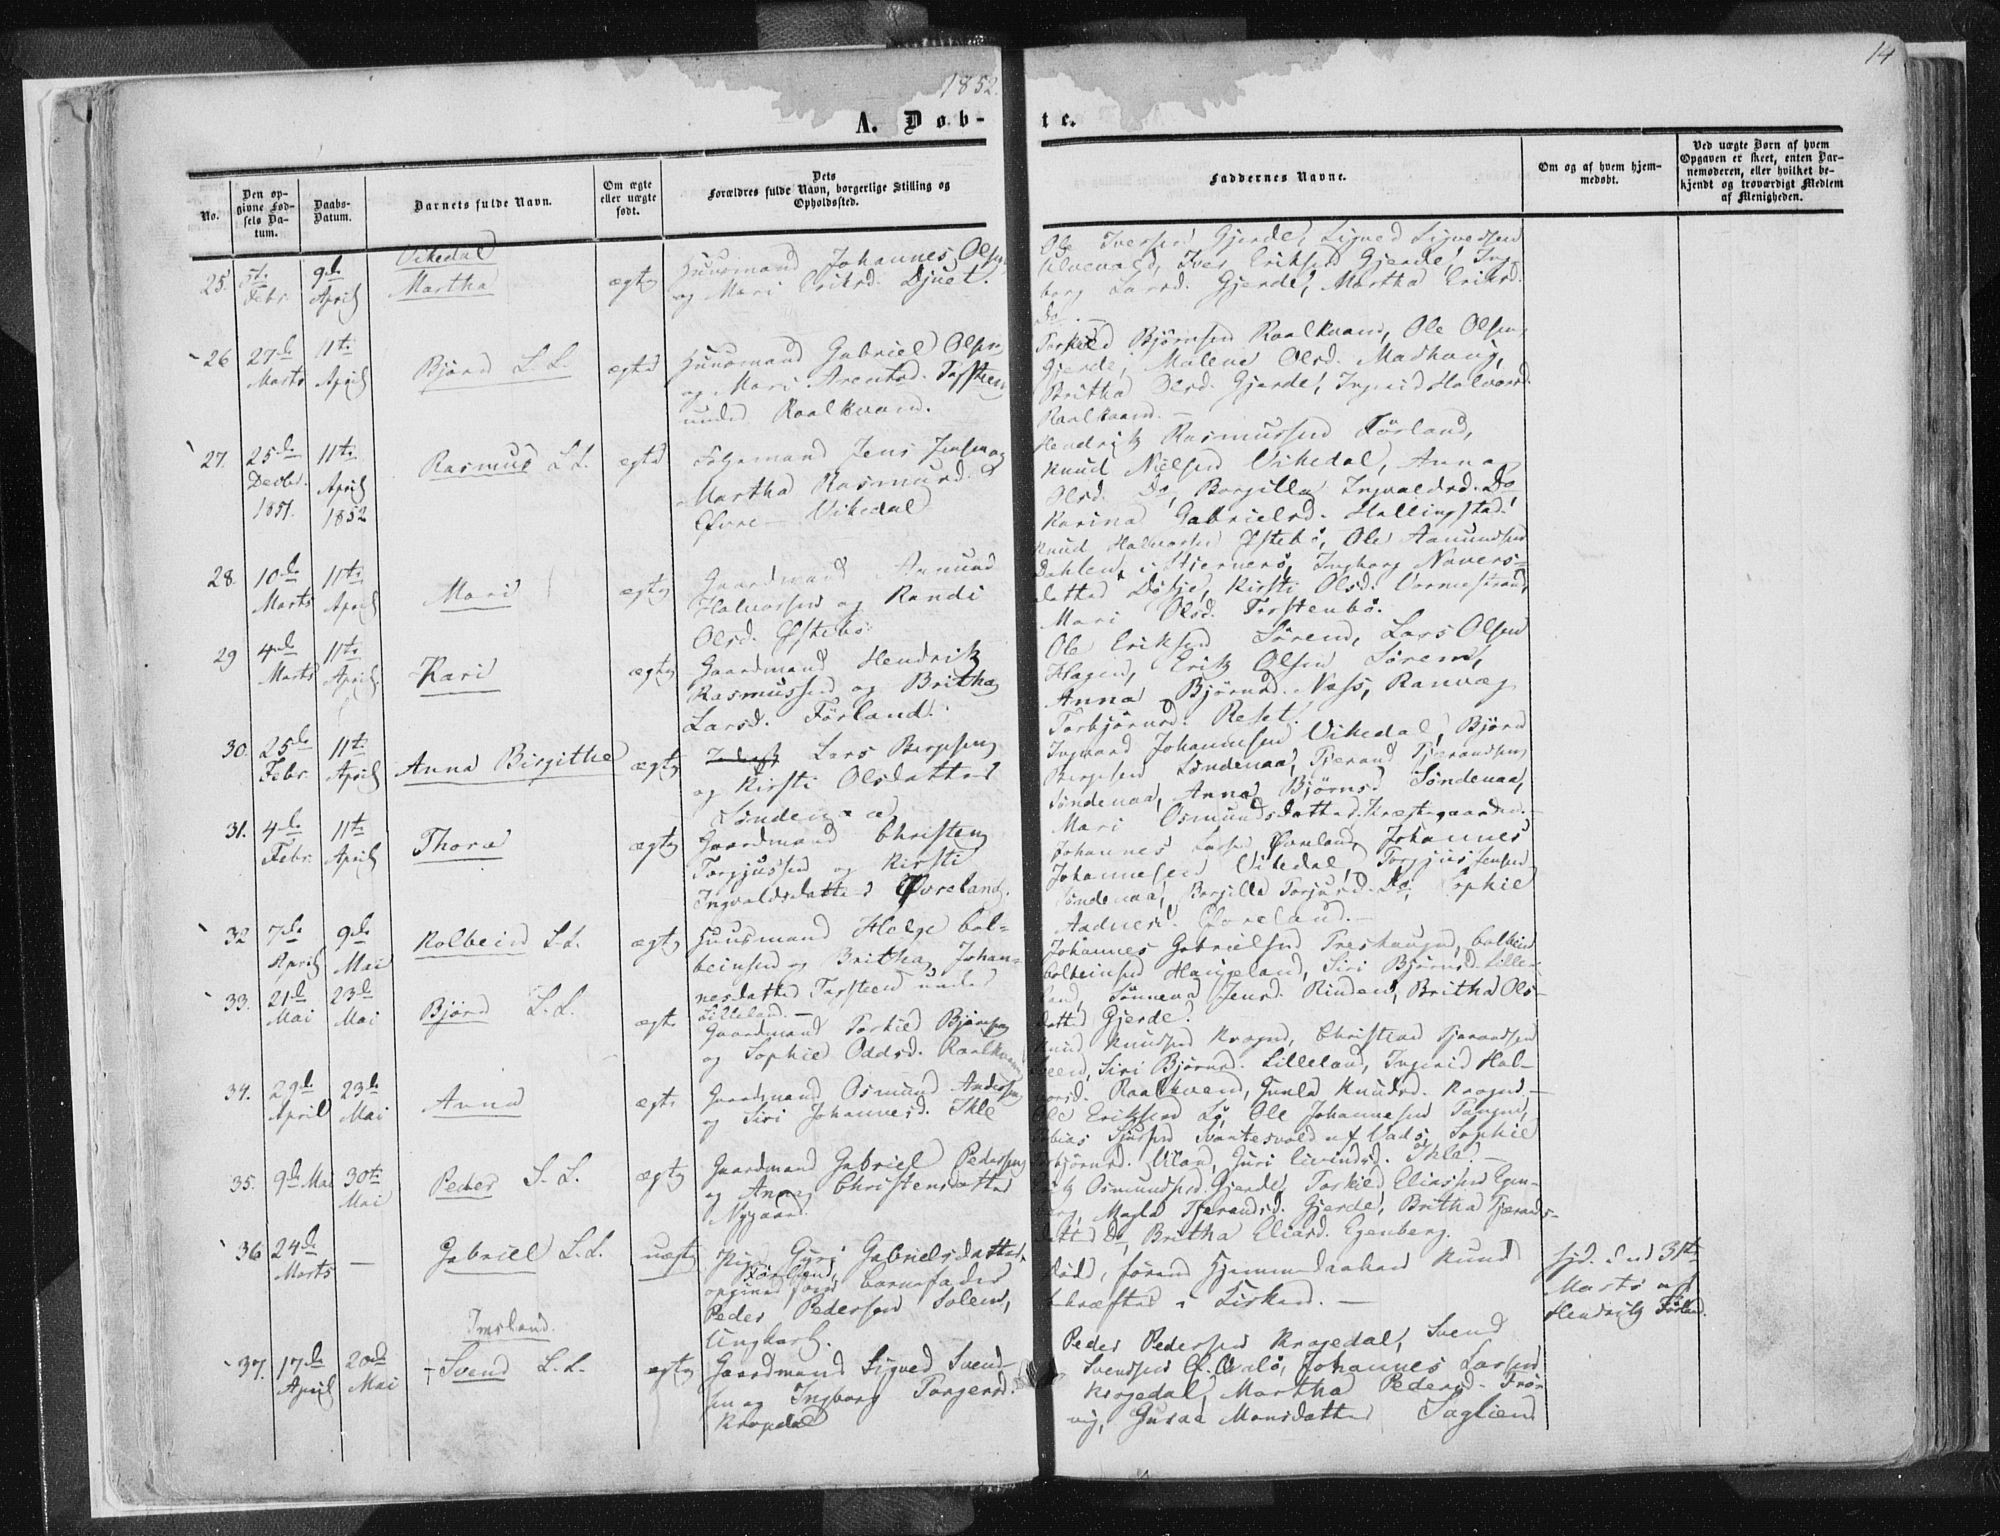 14
1852.
A. Døb-
te.
No.
Den op-
givne Fød-
sels Da-
tum.
Daabs-
Datum.
Barnets fulde Navn.
Om ægte
eller uægte
født.
Dets
Forældres fulde Navn, borgerlige Stilling og
Opholdssted.
Faddernes Navne.
Om og af hvem hjem-
medøbt.
Ved uægte Børn af hvem
Opgaven er skeet, enten Bar-
nemoderen, eller hvilket be-
kjendt og troværdigt Medlem
af Menigheden.
Vikedal
25. 5te Febr. 9de April
Martha
ægte
Huusmand Johannes Olsen
og Mari Eriksd. Djuet.
Ole Iversen Gjerde, Sigved Sigvedsen
Iver Eriksen Gjerde, Inge-
borg Larsd. Gjerde, Martha Eriksd.
Do
26 27de Marts 11te April
Bjørn L. L.
ægte
Huusmand Gabriel Olsen
og Mari Arentsd.
under Raalkvam.
Torkild Bjørnsen Raalkvam, Ole Olsen
Gjerde, Malene Olsd. Madhaug,
Britha Olsd. Gjerde, Ingrid Halvorsd.
Raalkvam. —
27. 25de Decbr. 1851. 11te April 1852
Rasmus L. L.
ægte
Jens Jensen og
Martha Rasmusd.
Øvre-Vikedal
Hendrik Rasmussen Førland,
Knud Nielsen Vikedal, Anna
Olsd. Do, Borgilla Ingvaldsd. Do
Karina Gabrielsd. Hallingstad.
28. 10de Marts 11te April
Mari
ægte
Gaardmand Aamund
Halvorsen og Randi
Olsd. Østebø.
Knud Halvorsen Østebø, Ole Aamundsen
Dahlen i Hjernerø, Ingborg
datter Kirsti Olsd. Vormestrand,
Mari Olsd. Forstenbø.
29 4de Marts 11te April
Kari
ægte
Gaardmand Hendrik
Rasmussen og Britha
Larsd. Førland.
Ole Eriksen Sørem, Lars Olsen
Hagen, Erik Olsen Sørem,
Anna Bjørnsd. Næss, Ranvæg
Torbjørnsd. Reset.
30. 25de Febr. 11te April
Anna Birgithe
ægte
Lars Bergesen
og Kirsti Olsdatter
Søndenaa
Ingvard Johannesen Vikedal, Bjørn
Bergesen Søndenaa, Tjerand Tjerandsen
Søndenaa, Anna Bjørnsd. Søndenaa,
Mari Osmundsdatter Præstegaarden.
31. 4de Febr. 11te April
Thora
ægte
Gaardmand Christen
Torgjussen og Kirsti
Ingvaldsdatter Øvreland.
Johannes Larsen Øvreland, Johannes
Johannesen Vikedal, Torgjus Jensen
Søndenaa, Borgilla Torjusd. Do, Sophie
Aadnesd. Øvreland. —
32 7de April 9de Mai
Kolbein L. L.
ægte
Huusmand Helge Col-
beinsen og Britha Johan-
nesdatter under
Lilleland. —
Johannes Gabrielsen Treshaugen, Colbein
Colbeinsen Haugeland, Siri Bjørnsd. Lille-
land, Sønneva Jensd. Rinden, Britha Ols-
datter Gjerde.
33. 21de Mai 23de Mai
Bjørn L. L.
ægte
Gaardmand Torkild Bjørnsen
og Sophie Oddsd. Raalkvam
Knud Knudsen Krogen, Christian Tjerandsen
Siri Bjørnsd. Lilleland, Ingrid Hal-
vorsd. Raalkvam, Gunla Knudsd. Krogen.
34. 29de April 23de Mai
Anna
ægte
Gaardmand Osmund Andersen
og Siri Johannesd. Ikle
Ole Eriksen Lø, Ole Johannesen Tangen,
Tobias Sjursen Svartesvold af Vads, Sophie
Torbjørnsd. Uland, Guri Eivindsd. Ikle. —
35. 9de Mai 30te Mai
Peder L. L.
ægte
Gaardmand Gabriel Pedersen
og Anna Christensdatter
Nygaard
Erik Osmundsen Gjerde, Torkild Eliassen Egen-
berg, Magla Tjerandsd. Gjerde, Britha Tjærands-
datter Do, Britha Eliasd. Egenberg.
36 24de Marts —
Gabriel L. L.
uægte
Pige Guri Gabrielsdatter
Førland,
opgiven som barnefader
Peder Pedersen Solem,
Ungkarl.
død, førend Hjemmedaaben kunde
bekræftes i Kirken. —
hjd. den 31te
Marts af
Hendrik Førland.
Imsland.
37. 17de April 20de Mai
† Svend L. L.
ægte
Gaardmand Sigved Svend-
sen og Ingborg Torgersd.
Krogedal
Peder Pedersen Krogedal, Svend
Svendsen Johannes Larsen
Krogedal, Martha Pedersd. Frør-
vig, Gusaa Monsdatter Taglien